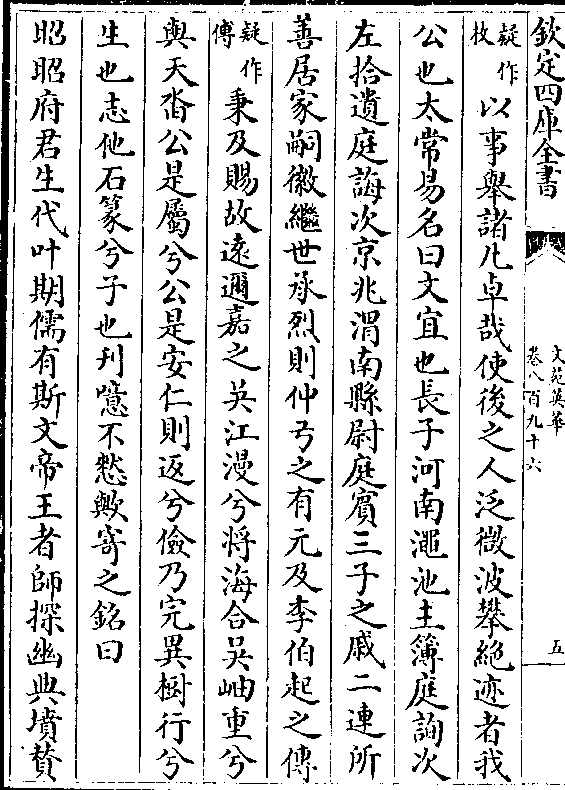 欽定四庫全書
文苑英華
卷八百九十六
五
疑作枚以事舉諸凡卓哉使後之人泛微波攀絶迹者我
公也太常易名曰文宜也長子河南澠池主簿庭詢次
左拾遺庭誨次京兆渭南縣尉庭賓三子之戚二連所
善居家嗣徽繼世承烈則仲弓之有元及李伯起之傳
疑作傅秉及賜故遠邇嘉之吳江漫兮将海合吳岫重兮
與天沓公是屬兮公是安仁則返兮儉乃完異樹行兮
生也志他石篆兮子也刋噫不憗歟寄之銘曰
昭昭府君生代叶期儒有斯文帝王者師探幽典墳賛